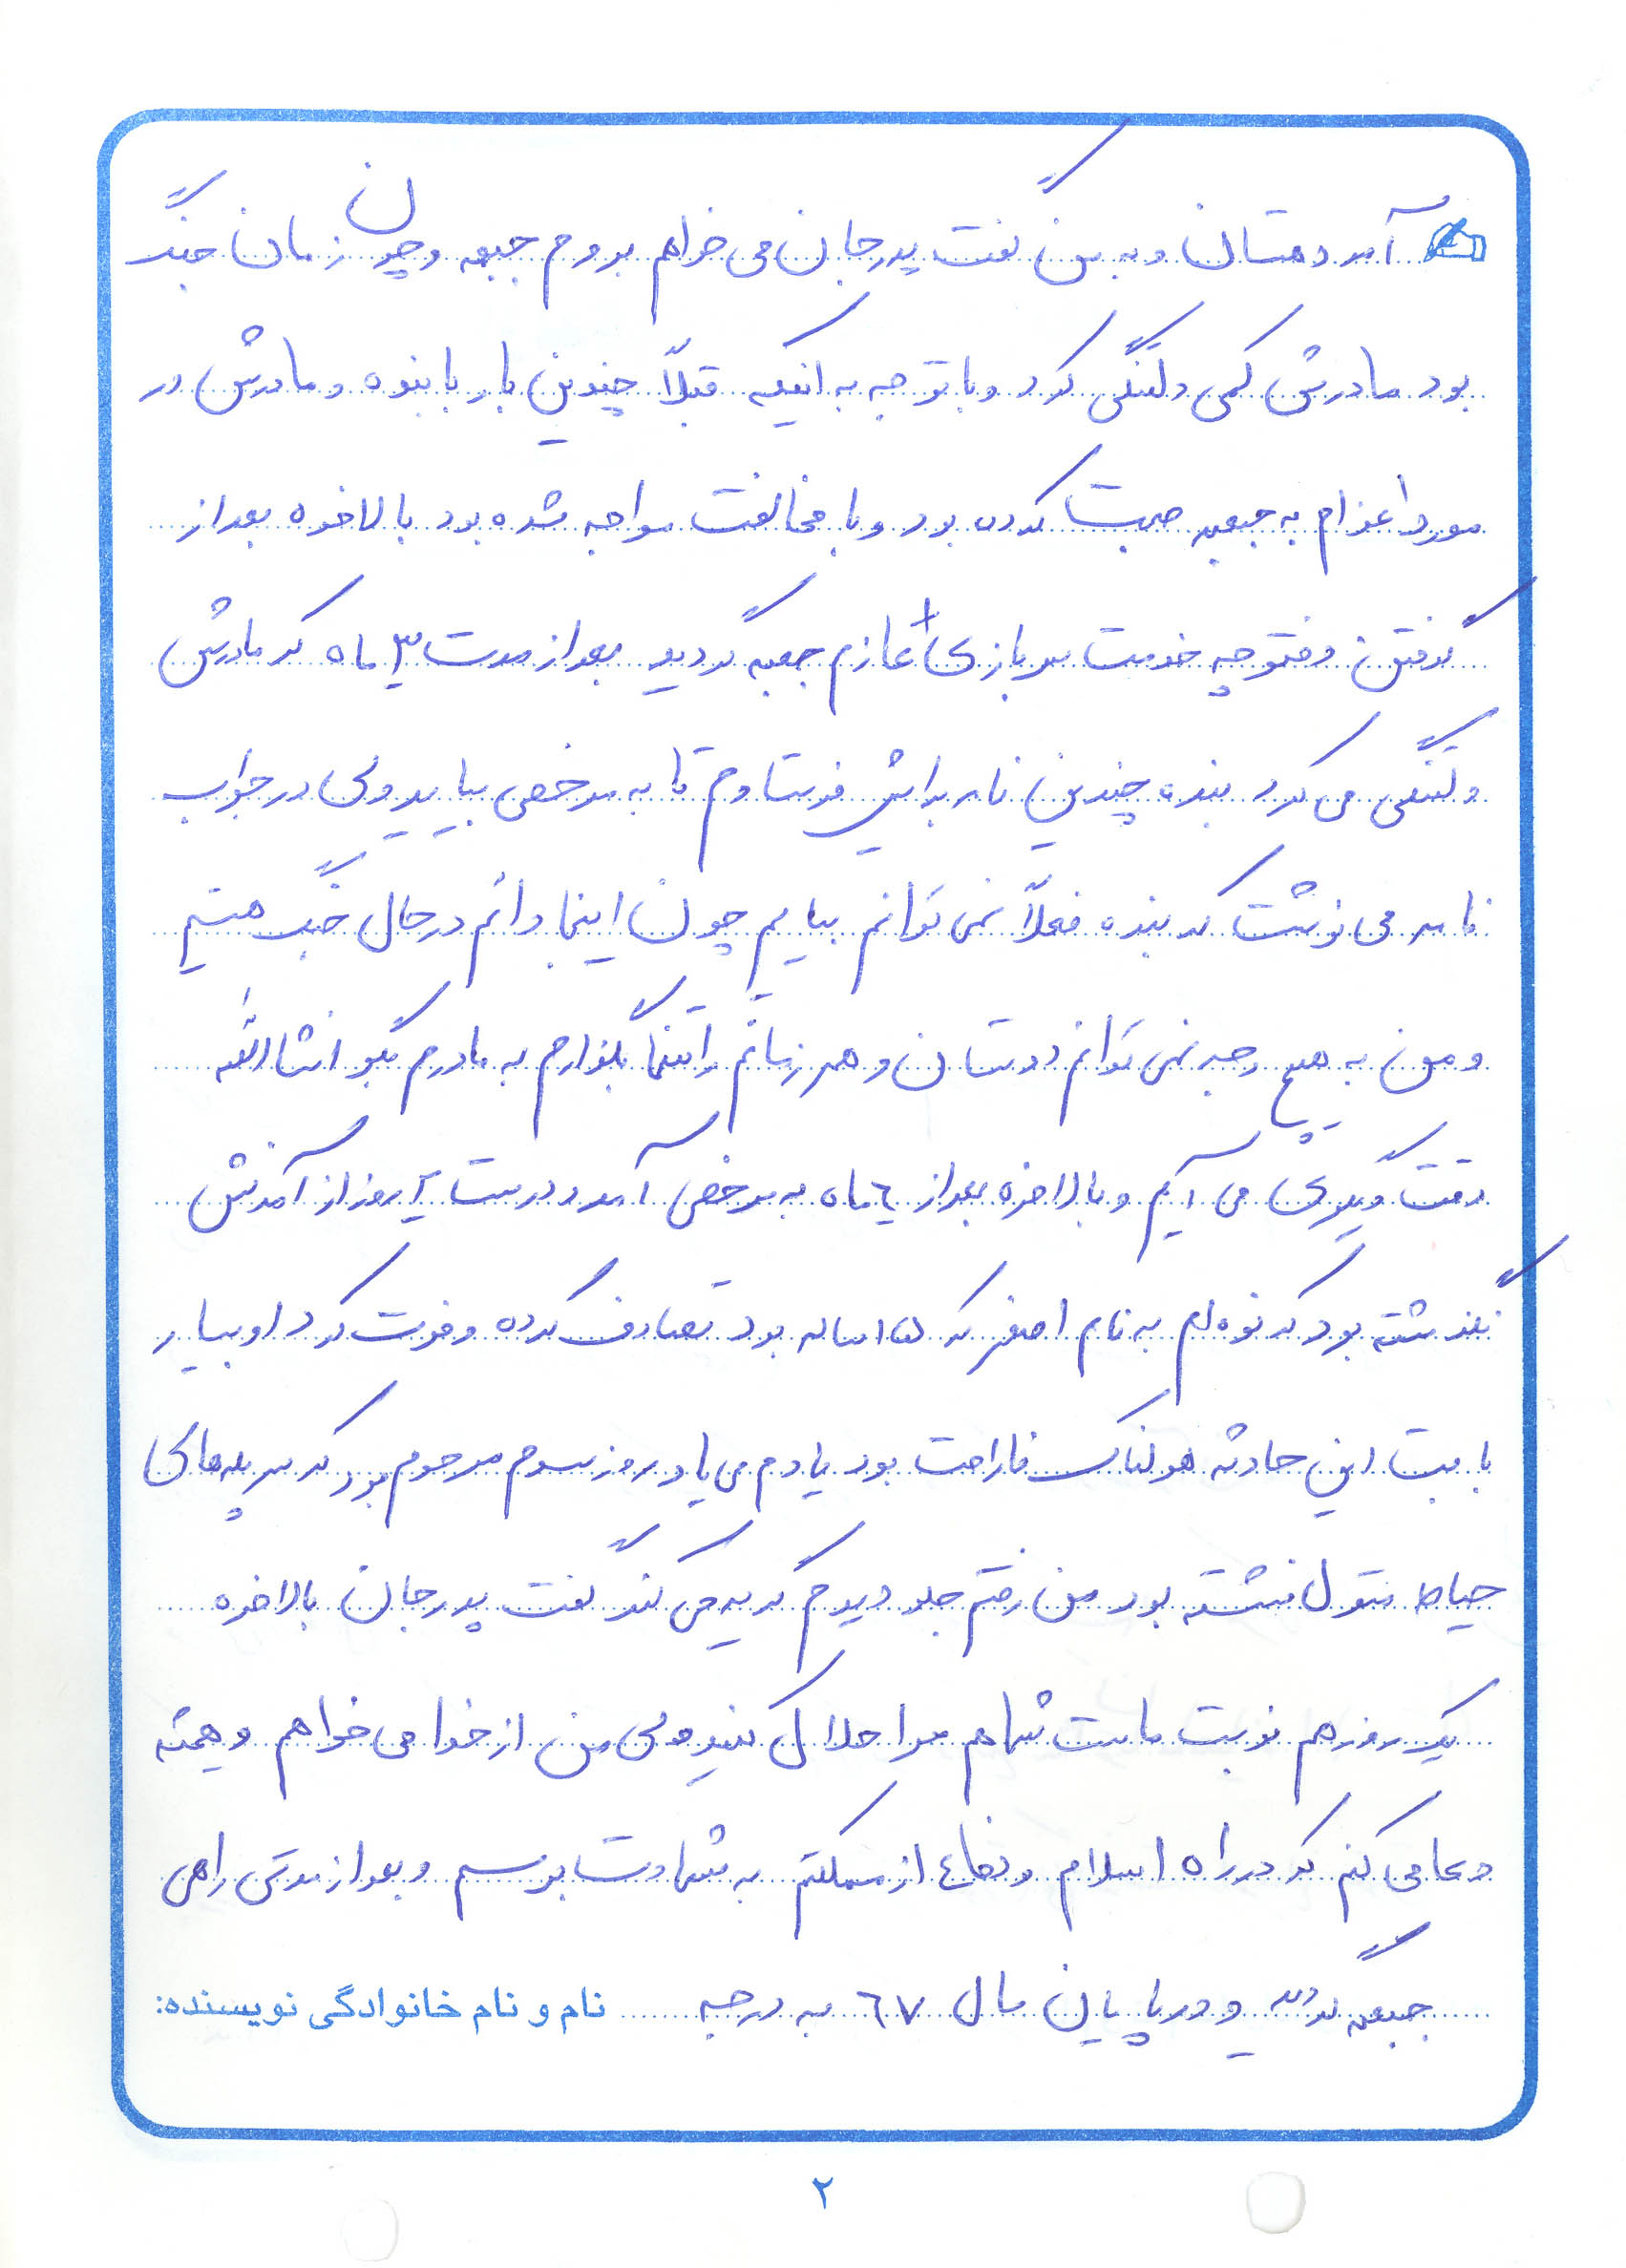 آمد دهستان و به من گفت پدر جان می خواهم بروم جبهه و چون زمان جنگ
بود مادرش کمی دلتنگی کرد و با توجه به اینکه قبلاً چندین بار با بنده و مادرش در
مورد اعزام به جبهه صحبت کرده بود و با مخالفت مواجه شده بود بالاخره بعد از
گرفتن دفترچه خدمت سربازی عازم جبهه گردید بعد از مدت ۳ ماه که مادرش
دلتنگی می کرد بنده چندین نامه برایش فرستادم تا به مرخصی بیاید ولی در جواب
نامه می نوشت که بنده فعلاً نمی توانم بیایم چون اینجا دائم در حال جنگ هستیم
و من به هیچ وجه نمی توانم دوستان و همرزمانم را تنها بگذارم به مادرم بگو انشاالله
وقت دیگری می آیم و بالاخره بعد از ٦ ماه به مرخصی آمد و درست ۲ روز از آمدنش
گذشته بود که نوه ام به نام اصغر که ۱۵ ساله بود تصادف کرده و فوت کرد او بسیار
بابت این حادثه هولناک ناراحت بود یادم می یاد روز سوم مرحوم بود که سر پله های
حیاط منزل نشسته بود من رفتم جلو دیدم گریه می کند گفت پدر جان بالاخره
یک روز هم نوبت ماست شما هم مرا حلال کنید ولی من از خدا می خواهم و همیشه
دعا می کنم که در راه اسلام و دفاع از مملکتم به شهادت برسم و بعد از مدتی راهی
جبهه گردید و در پایان سال ٦٧ به درجه
نام و نام خانوادگی نویسنده:
۲